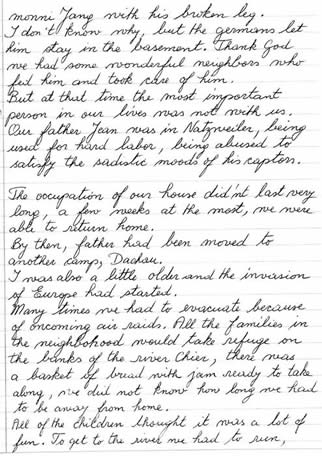 monni Jang with his broken leg.
I don't know why, but the germans let
him stay in the basement. Thank God
we had some wonderful neighbors who
fed him and took care of him.
But at that time the most important
person in our lives was not with us.
Our father Jean was in Natzweiler, being
used for hard labor, being abused to
satisfy the sadistic moods of his captors.
The occupation of our house did'nt last very
long, a few weeks at the most, we were
able to return home.
By then, father had been moved to
another camp, Dachau.
I was also a little older and the invasion
of Europe had started.
Many times we had to evacuate because
of oncoming air raids. All the families in
the neighborhood would take refuge on
the banks of the river Chier, there was
a basket of bread with jam ready to take
along, we did not know how long we had
to be away from home.
All of the children thought it was a lot of
fun. To get to the river we had to run,